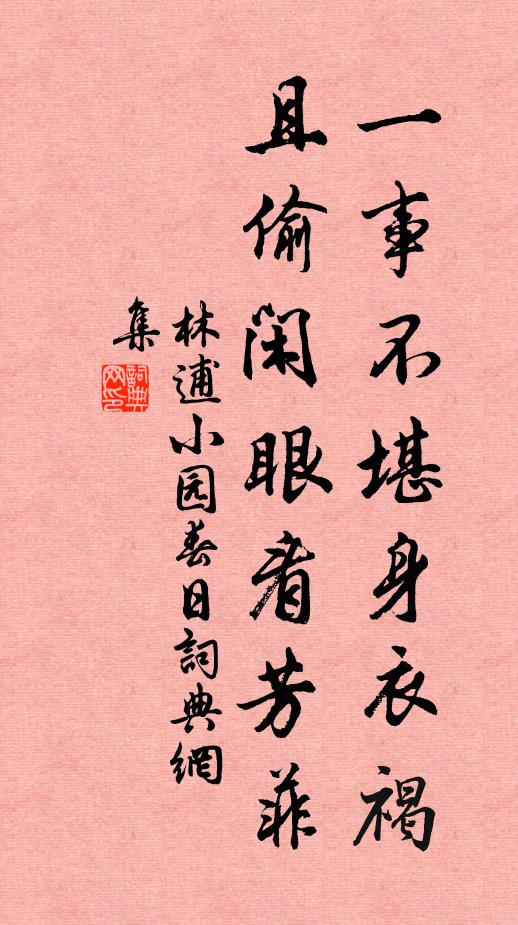 一事不堪身衣褐
且偷闲眼看芳菲
林逋小园春日詞典網
集
詞典
网印